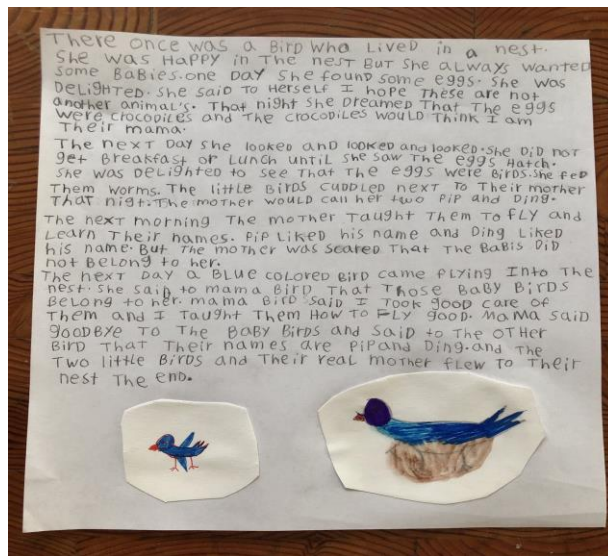 There once was a Bird who Lived in a nest.
She was Happy in The nest But she always wanted
some Babies. one Day she found some eggs. She was
DeLighTeD. She said To Herself I hope These are not
another animal's. That night She Dreamed That The eggs
were crocodiles and The crocodiles would Think I am
Their mama.
The next Day she looked and looked and looked. She DiD not
get Breakfast or Lunch until she saw The eggs Hatch.
She was DeLighted to see That The eggs were Birds. She feD
Them worms. The little Birds cuddled next To Their mother
That nigt. The mother would call her two Pip and Ding.
The next morning The mother Taught Them To fly and
Learn Their names. Pip Liked his name and Ding Liked
his name. But The mother was scared That The Babis DiD
not Belong to her.
The next Day a BLue coLored Bird came fLying Into The
nest. She said to mama Bird That Those BaBy BirDs
BeLong to her. mama Bird said I Took good care of
Them and I Taught Them How to FLy good. Mama said
goodbye To The BaBy Birds and Said to The oTHer
Bird That Their names are Pip and Ding. and The
Two little Birds and Their real mother flew To Their
nest The end.